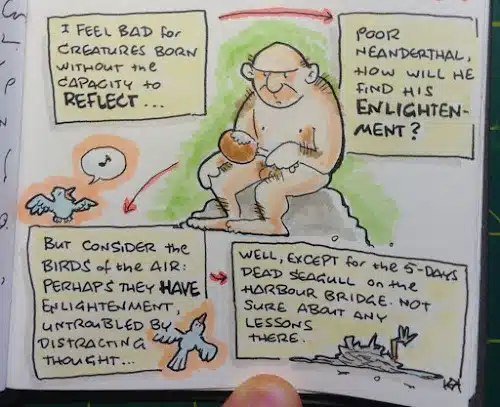 I FEEL BAD for
CREATURES BORN
WITHOUT the
CAPACITY to
REFLECT...
POOR
NEANDERTHAL,
HOW WILL HE
FIND HIS
ENLIGHTEN-
MENT?
BUT CONSIDER the
BIRDS of the AIR:
PERHAPS THEY HAVE
ENLIGHTENMENT,
UNTROUBLED BY
DISTRACTING
THOUGHT...
WELL, EXCEPT for the 5-DAYS
DEAD SEAGULL on the
HARBOUR BRIDGE. NOT
SURE ABOUT ANY
LESSONS
THERE.